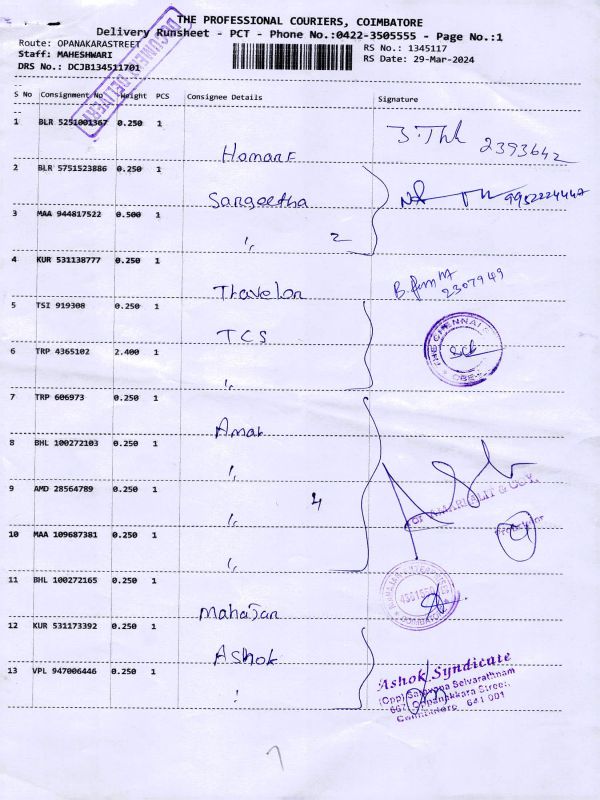 THE PROFESSIONAL COURIERS, COIMBATORE
Delivery Runsheet - PCT - Phone No.:0422-3505555 - Page No.:1
Route: OPANAKARASTREET
RS No.: 1345117
Staff: MAHESHWARI
RS Date: 29-Mar-2024
DRS No.: DCJB134511701
DOCUMENT DELIVERY
S No Consignment No Weight PCS Consignee Details Signature
1 BLR 5251001367 0.250 1
2393642
2 BLR 5751523886 0.250 1
Sangeetha
9952224447
3 MAA 944817522 0.500 1
" 2
4 KUR 531138777 0.250 1
Travelon
2307949
5 TSI 919308 0.250 1
TCS
THE CHENNAI
6 TRP 4365102 2.400 1
"
7 TRP 606973 0.250 1
Amar
8 BHL 100272103 0.250 1
"
9 AMD 28564789 0.250 1
" 4
For
10 MAA 109687381 0.250 1
"
11 BHL 100272165 0.250 1
Mahajan
12 KUR 531173392 0.250 1
Ashok
13 VPL 947006446 0.250 1
"
Ashok Syndicate
(Opp) Saravana Selvarathnam
667, Oppanakkara Street,
Coimbatore - 641 001